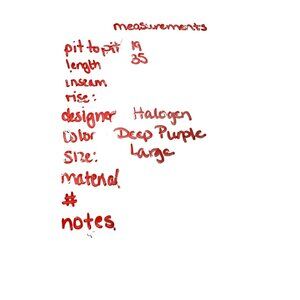 measurements
pit to pit 19
length 35
inseam
rise:
designer Halogen
color Deep Purple
Size: Large
material
#
notes.